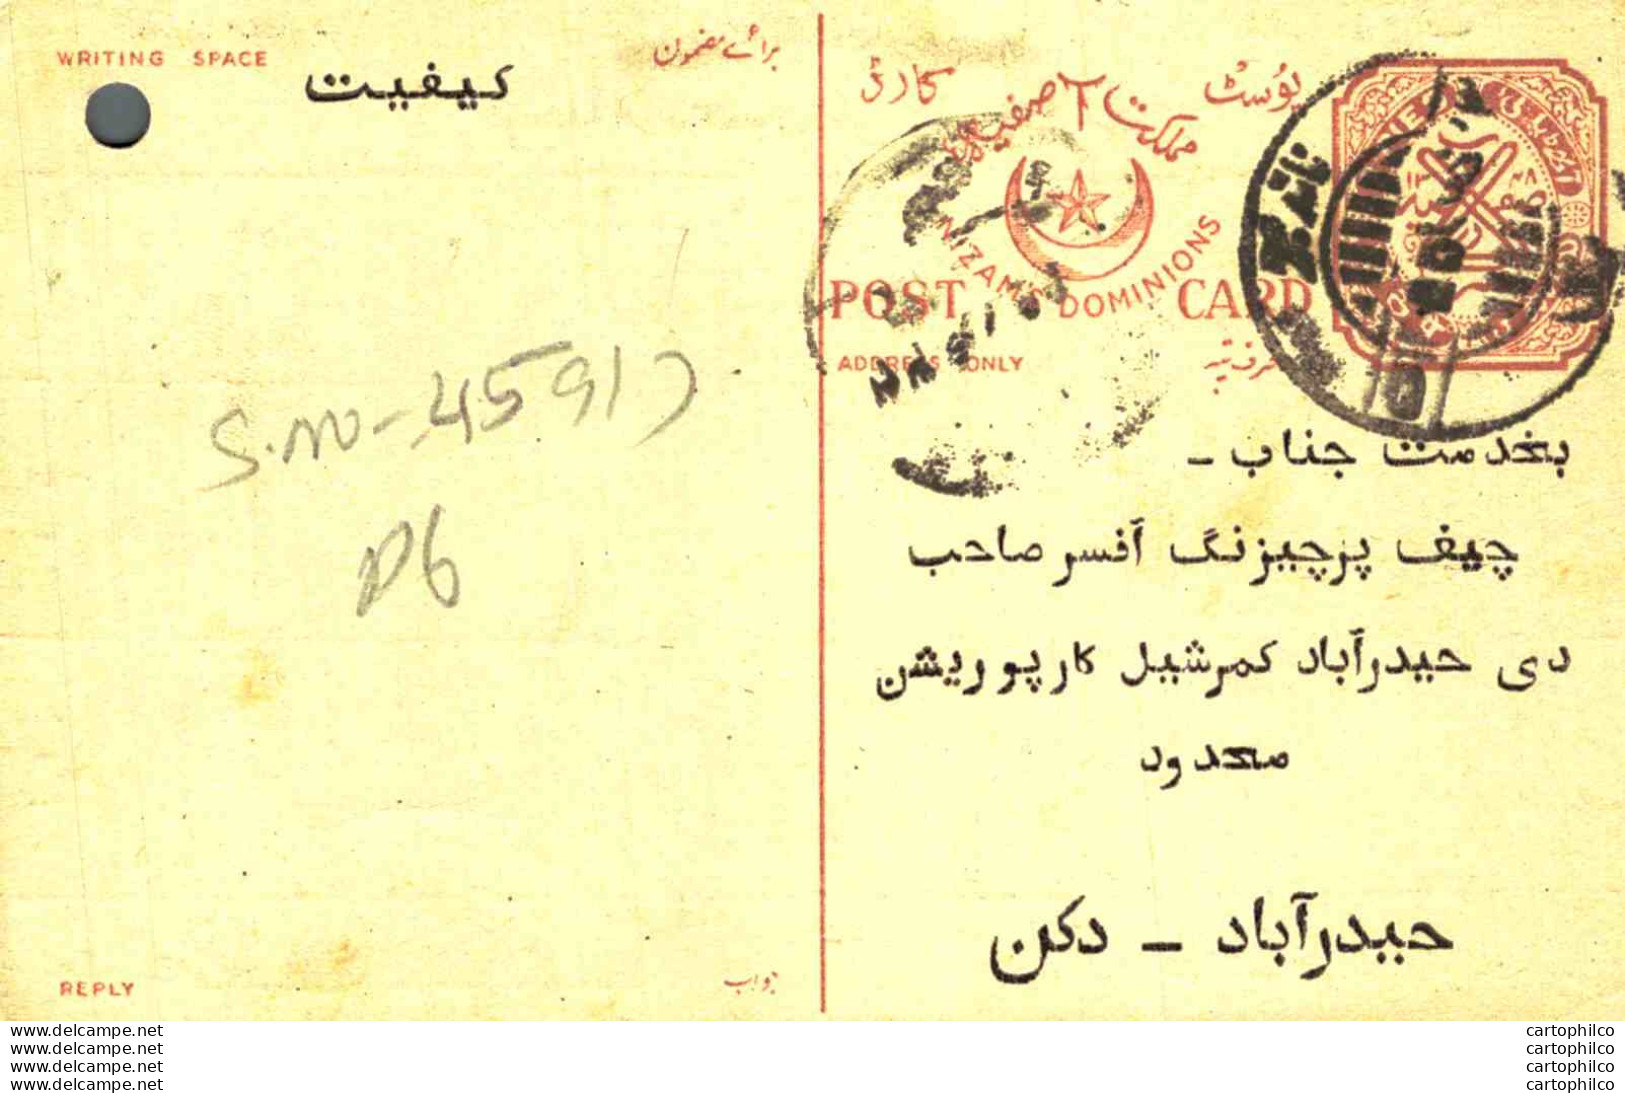 WRITING SPACE
برائے مضمون
کیفیت
S.no-4591
REPLY
جواب
پوسٹ کارڈ
مملکت آصفیہ
NIZAM'S DOMINIONS
POST CARD
ADDRESS ONLY
صرف پتہ
بخدمت جناب -
چیف پرچیزنگ آفسر صاحب
دی حیدرآباد کمرشیل کارپوریشن
محدود
حیدرآباد - دکن
www.delcampe.net
www.delcampe.net
www.delcampe.net
www.delcampe.net
cartophilco
cartophilco
cartophilco
cartophilco